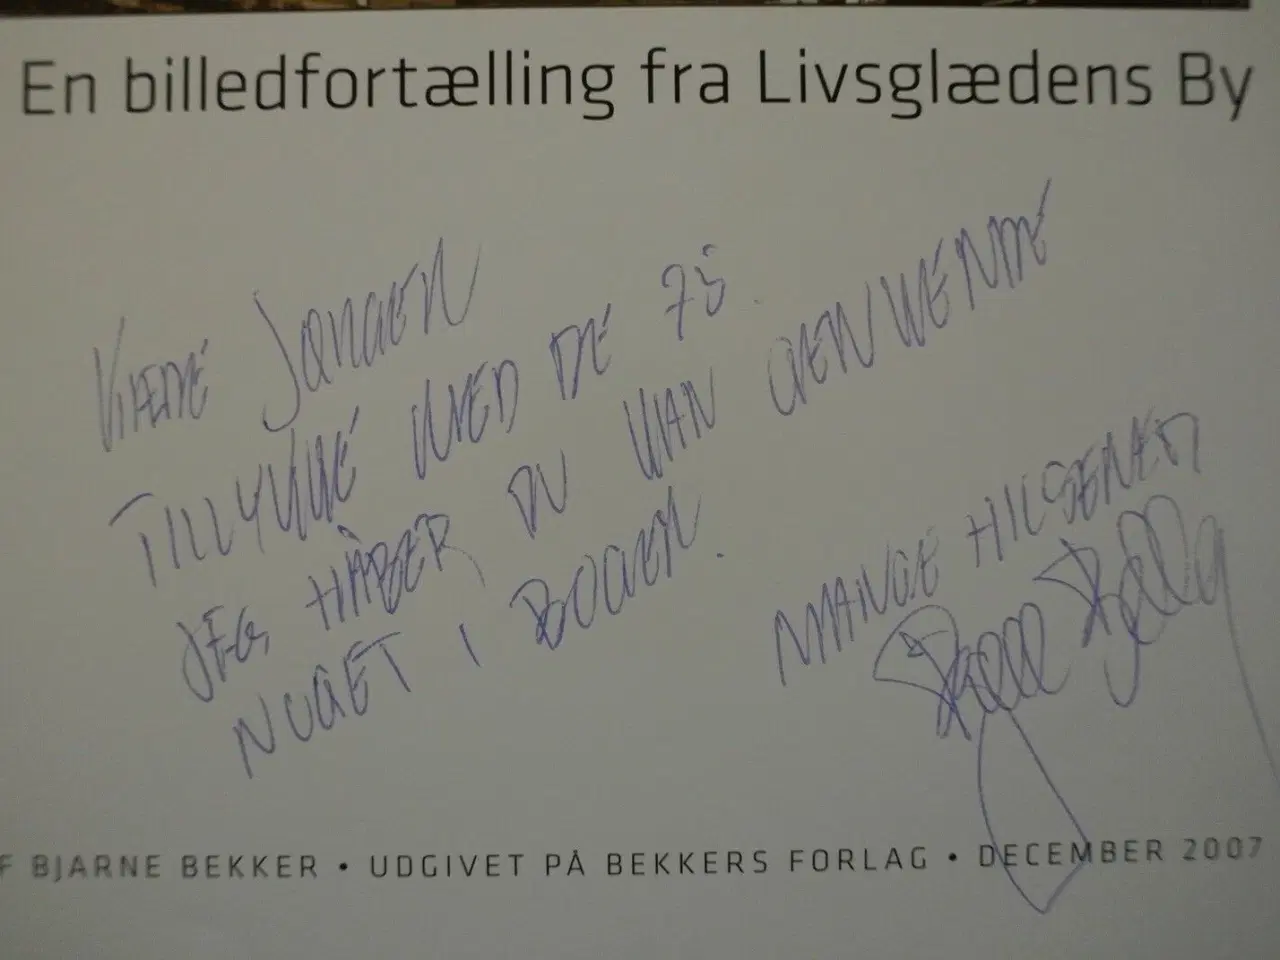 En billedfortælling fra Livsglædens By
KÆRE JØRGEN
TILLYKKE MED DE 75.
JEG HÅBER DU KAN GENKENDE
NOGET I BOGEN.
MANGE HILSENER
F BJARNE BEKKER • UDGIVET PÅ BEKKERS FORLAG • DECEMBER 2007